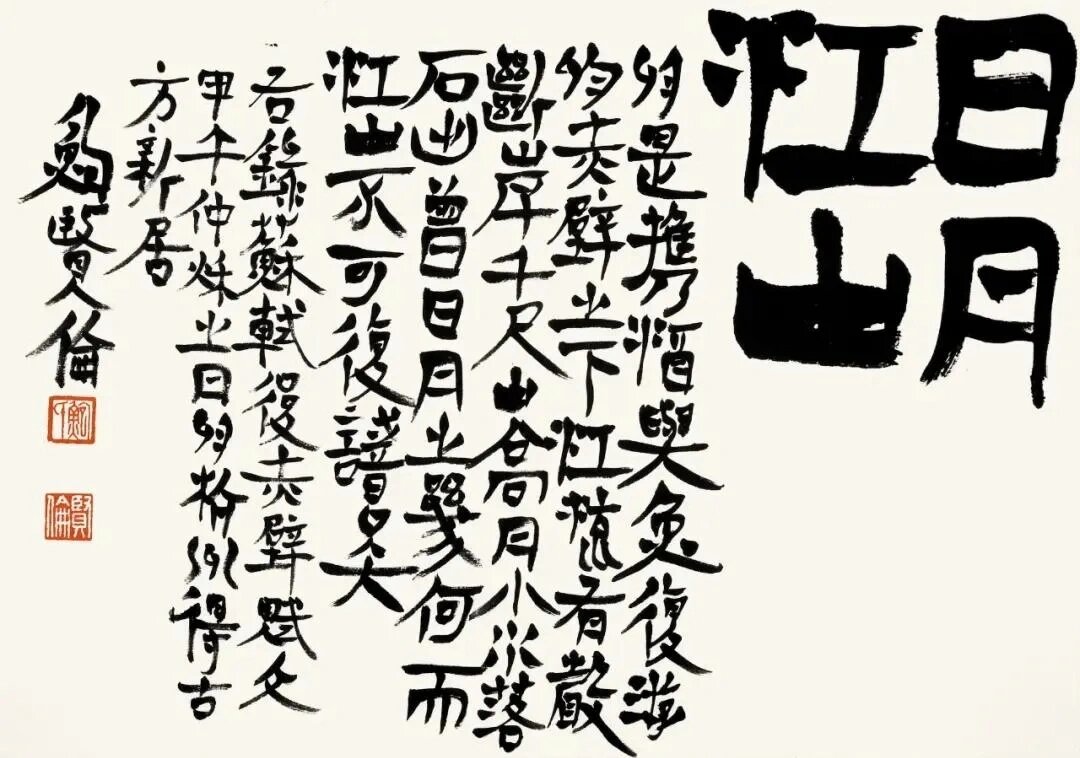 日月
江山
於是攜酒與魚復游
於赤壁之下江流有聲
斷岸千尺山高月小水落
石出曾日月之幾何而
江山不可復識矣
右錄蘇軾後赤壁賦文
甲午仲秋之日於杭州得古
方新居
鮑賢倫
賢倫